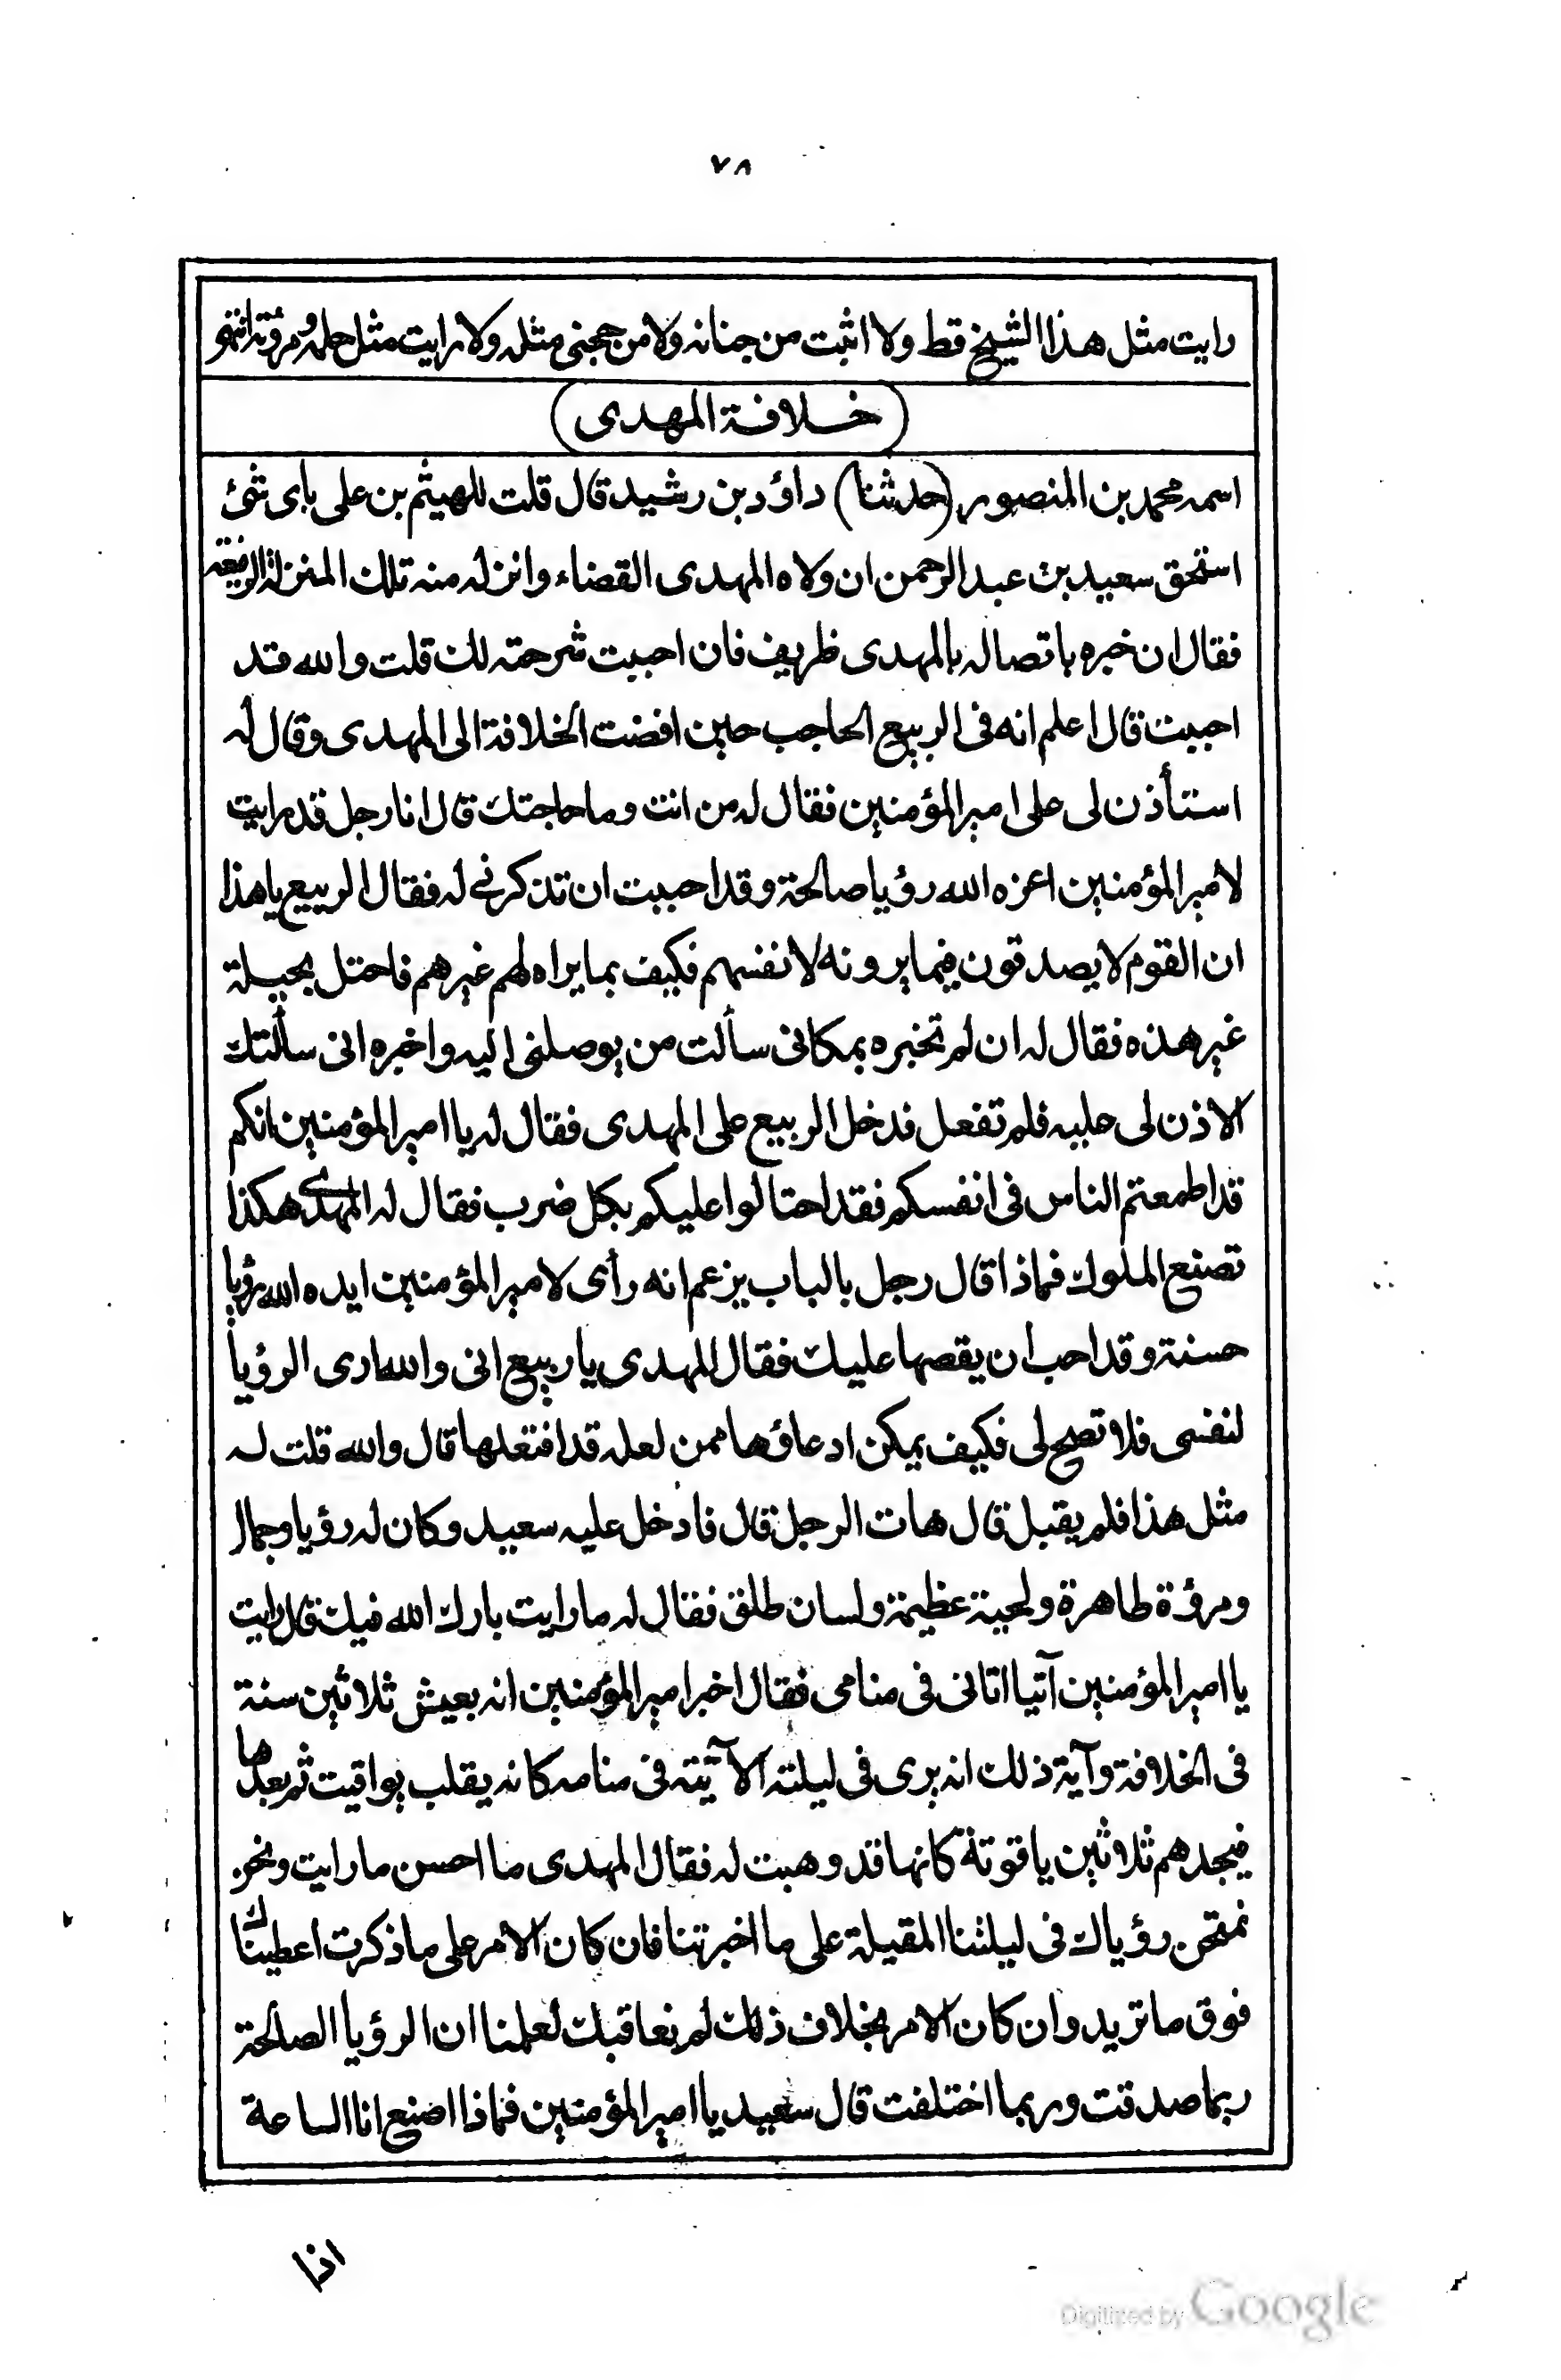 ٧٨
رايت مثل هذا الشيخ قط ولا اثبت من جنانه ولا من حجتى مثله ولا رايت مثل حلمه ومرؤته انتهى
(خلافة المهدى)
اسمه محمد بن المنصور (حدثنا) داؤد بن رشيد قال قلت للهيثم بن على باى شئ
استحق سعيد بن عبد الرحمن ان ولاه المهدى القضاء وانزله منه تلك المنزلة الرفيعة
فقال ان خبره باتصاله بالمهدى ظريف فان احببت شرحته لك قلت والله قد
احببت قال اعلم انه فى الربيع الحاجب حين افضت الخلافة الى المهدى وقال له
استأذن لى على امير المؤمنين فقال له من انت وما حاجتك قال انا رجل قد رايت
لامير المؤمنين اعزه الله رؤيا صالحة وقد احببت ان تذكرنى له فقال الربيع يا هذا
ان القوم لا يصدقون فيما يرونه لانفسهم فكيف بما يراه لهم غيرهم فاحتل بحيلة
غير هذه فقال له ان لم تخبره بمكانى سألت من يوصلنى اليه واخبره انى سألتك
الاذن لى عليه فلم تفعل فدخل الربيع على المهدى فقال له يا امير المؤمنين انكم
قد اطمعتم الناس فى انفسكم فقد احتالوا عليكم بكل ضرب فقال له المهدى هكذا
تصنع الملوك فماذا قال رجل بالباب يزعم انه رأى لامير المؤمنين ايده الله رؤيا
حسنة وقد احب ان يقصها عليك فقال المهدى يا ربيع انى والله ارى الرؤيا
لنفسى فلا تصح لى فكيف يمكن ادعاؤها ممن لعله قد افتعلها قال والله قلت له
مثل هذا فلم يقبل قال هات الرجل قال فادخل عليه سعيد وكان له رؤيا وجمال
ومرؤة طاهرة ولحية عظيمة ولسان طلق فقال له ما رايت بارك الله فيك قال رايت
يا امير المؤمنين آتيا اتانى فى منامى فقال اخبر امير المؤمنين انه يعيش ثلاثين سنة
فى الخلافة وآية ذلك انه يرى فى ليلته الآتيته فى منامه كانه يقلب يواقيت ثم يعدها
فيجدهم ثلاثين ياقوتة كانها قد وهبت له فقال المهدى ما احسن ما رايت ونحن
نمتحن رؤياك فى ليلتنا المقيلة على ما اخبرتنا فان كان الامر على ما ذكرت اعطيناك
فوق ما تريد وان كان الامر بخلاف ذلك لم نعاقبك لعلمنا ان الرؤيا الصالحة
ربما صدقت وربما اختلفت قال سعيد يا امير المؤمنين فماذا اصنع انا الساعة
اذا
Digitized by Google